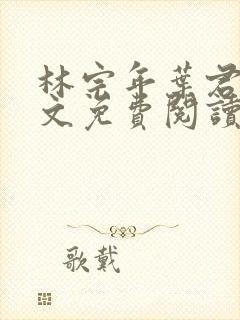 林宗年葉君
文免費閱讀
歌戴